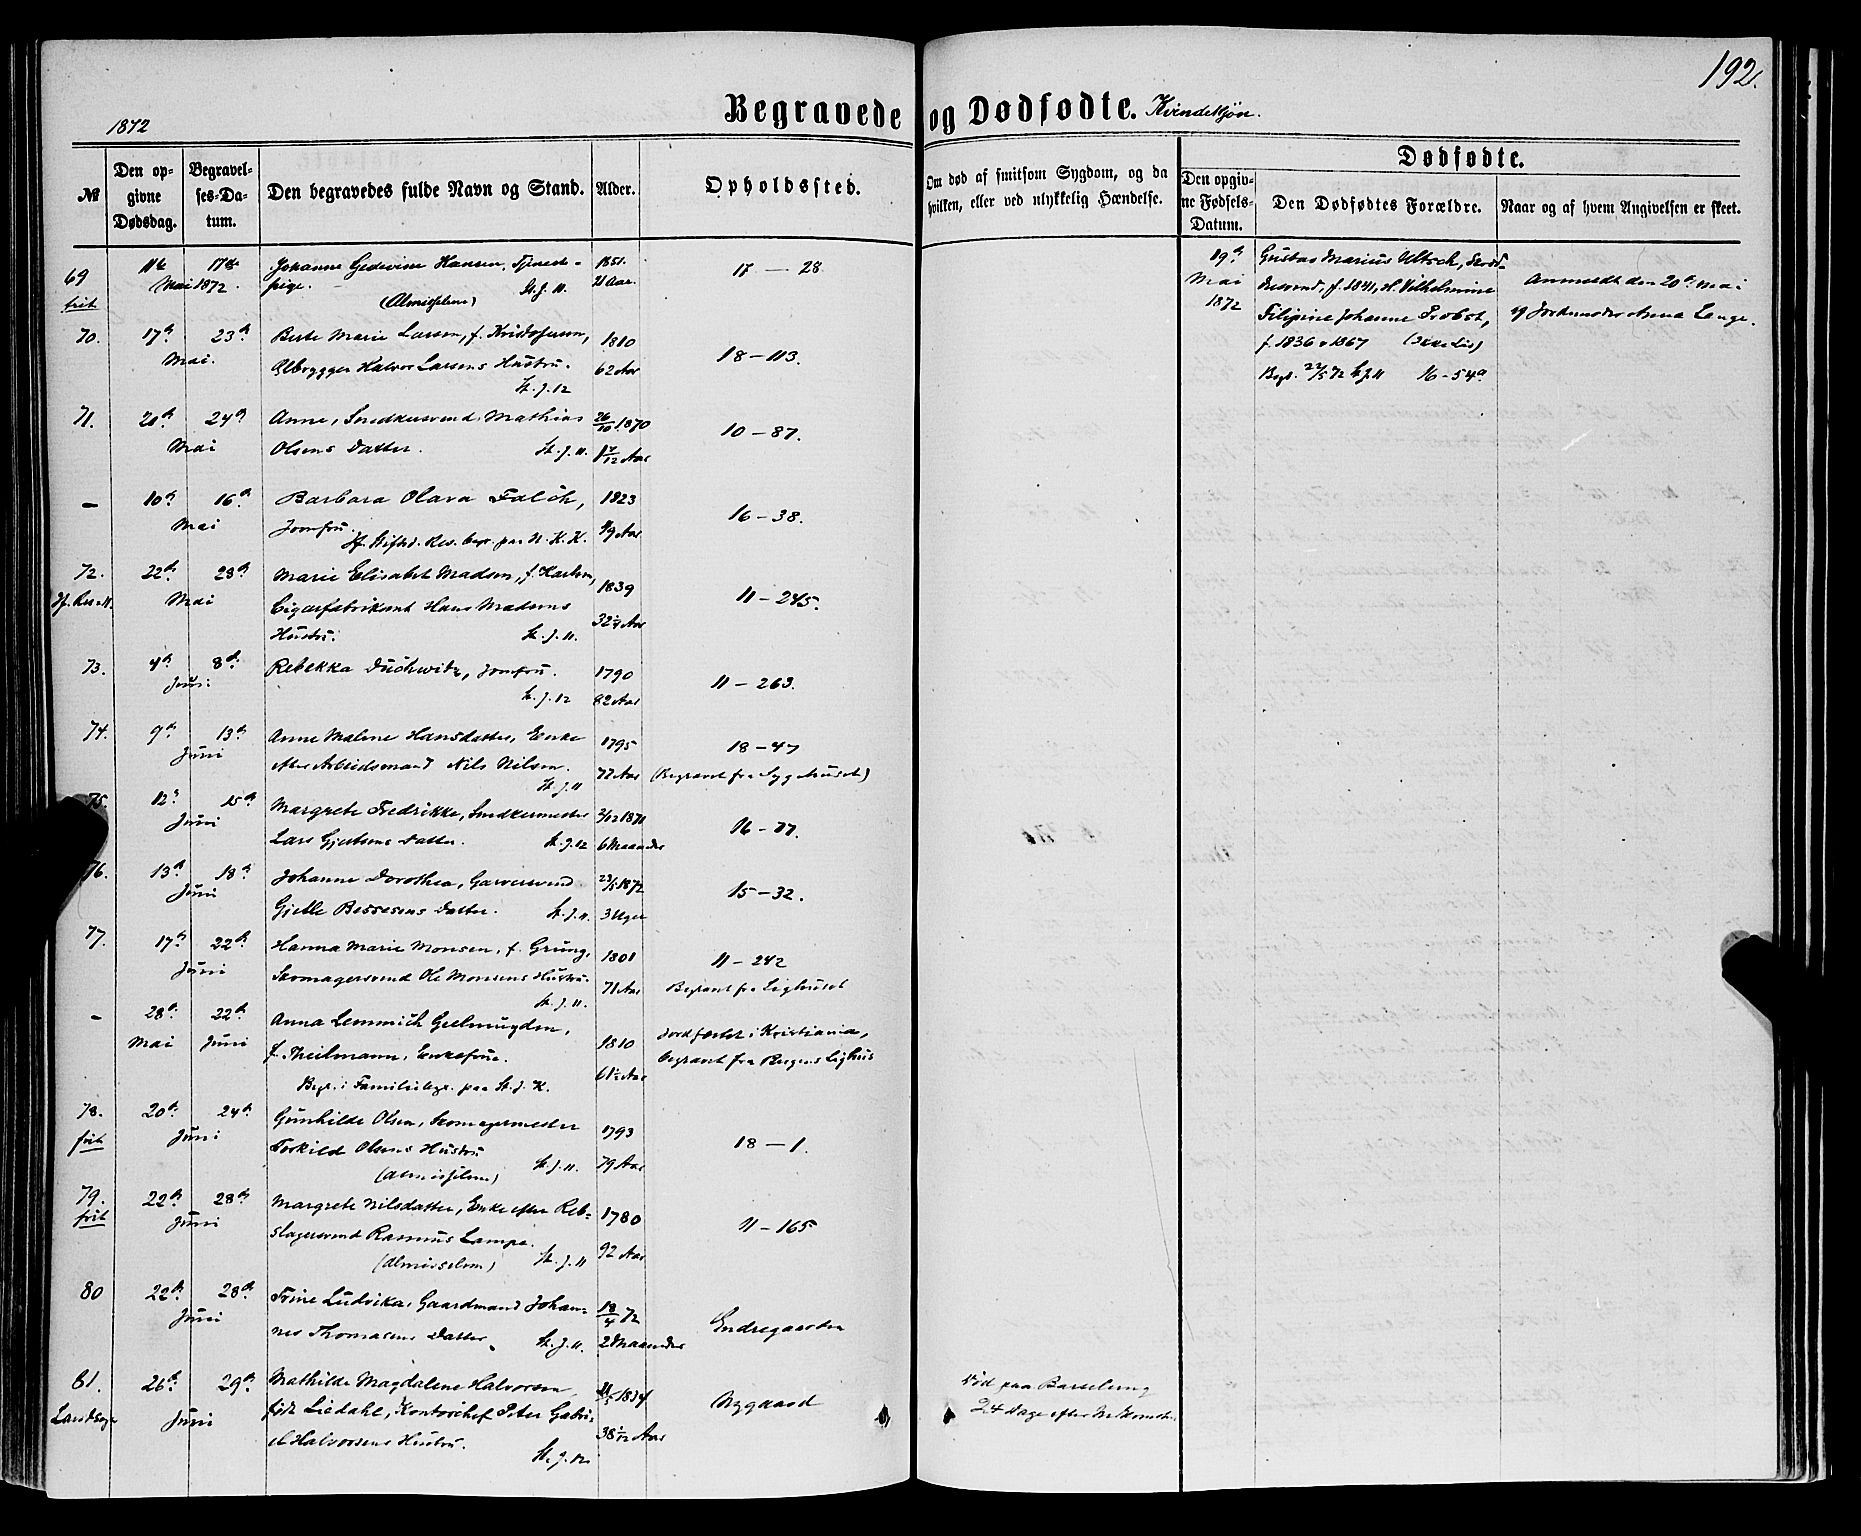 192.
1872
Begravede og Dødfødte. Kvindekjøn.
№
Den opgivne Dødsdag.
Begravelses-Datum.
Den begravedes fulde Navn og Stand.
Alder.
Opholdssted.
Om død af smitsom Sygdom, og da hvilken, eller ved ulykkelig Hændelse.
Dødfødte.
Den opgivne Fødsels-Datum.
Den Dødfødtes Forældre.
Naar og af hvem Angivelsen er skeet.
69 11te 17de Johanne Gedevine Hansen, Tjeneste- 1851. 17 — 28
frit Mai 1872. pige. (Almisselem) St. J. 11. 21 Aar.
70. 17de 23de Berte Marie Larsen, f. Kristofersen, 1810 18 — 113.
Mai. Ølbrygger Halvor Larsens Hustru. 62 Aar
St. J. 12
71. 20de 24de Anne, Snedkersvend Mathias 26/10 1870 10 — 87.
Mai Olsens Datter. St. J. 11. 1 7/12 Aar
— 10de 16de Barbara Olava Falch, 1823 16 — 38.
Mai Jomfru. Hf. Stiftsd. Res. begr. paa N. K. K. 49 Aar
72. 22de 28de Marie Elisabet Madsen, f. Karlsen, 1839 11 — 245.
Mai Cigarfabrikant Hans Madsens 32 3/4 Aar
Hustru. St. J. 11.
73. 4de 8de Rebekka Duchwitz, Jomfru. 1790 11 — 263.
Juni St. J. 12 82 Aar
74. 9de 13de Anne Malene Hansdatter, Enke 1795 18 — 47
Juni efter Arbeidsmand Nils Nilsen. 77 Aar (Begravet fra Sygehuset)
St. J. 11
75. 12te 15de Margrete Fredrikke, Snedkermester 2/12 1871 16 — 77.
Juni Lars Gjertsens Datter. St. J. 12 6 Maaneder
76. 13de 18de Johanne Dorothea, Garversvend 23/5 1872 15 — 32.
Juni Gjelle Bessesens Datter. St. J. 11. 3 Uger
77. 17de 22de Hanna Marie Monsen, f. Grung, 1801 11 — 242
Juni Skomagersvend Ole Monsens Hustru. 71 Aar Begravet fra Lighuset
St. J. 11.
— 28de 22de Anna Lemmich Gjelmuyden, 1810 Jordfæstet i Kristiania,
Mai Juni f. Heilmann, Enkefrue. 61 1/2 Aar begravet fra Bergens Lighus
Begr. i Familiebegr. paa St. J. K.
78. 20de 24de Gunhilde Olsen, Skomagermester 1793 18 — 1.
frit Juni Torkild Olsens Hustru 79 Aar
(Almisselem) St. J. 11.
79. 22de 28de Margrete Nilsdatter, Enke efter Reb- 1780 11 — 165
frit Juni slagersvend Rasmus Lampe. 92 Aar
(Almisselem) St. J. 11
80 22de 28de Trine Ludvika, Gaardmand Johan- 18/4 72 Endregaarden
Juni nes Thomasens Datter. St. J. 11. 2 Maaneder
81. 26de 29de Mathilde Magdalene Halvorsen, 1834 Nygaard Død paa Barselseng
Juni født Liedahl, Kontorchef Peter Gabri- 38 1/12 Aar 24 Dage efter Nedkomsten
el Halvorsens Hustru. St. J. 12
19de Gustav Marius Ultsch,
Mai f. 1841, og Vilhelmine Anmeldt den 20de Mai
1872 Filipine Johanne Probst, af Jordmoder Anna Lange.
f. 1836 v. 1867
Begr. 22/5 72 St. J. 11 16 — 54a